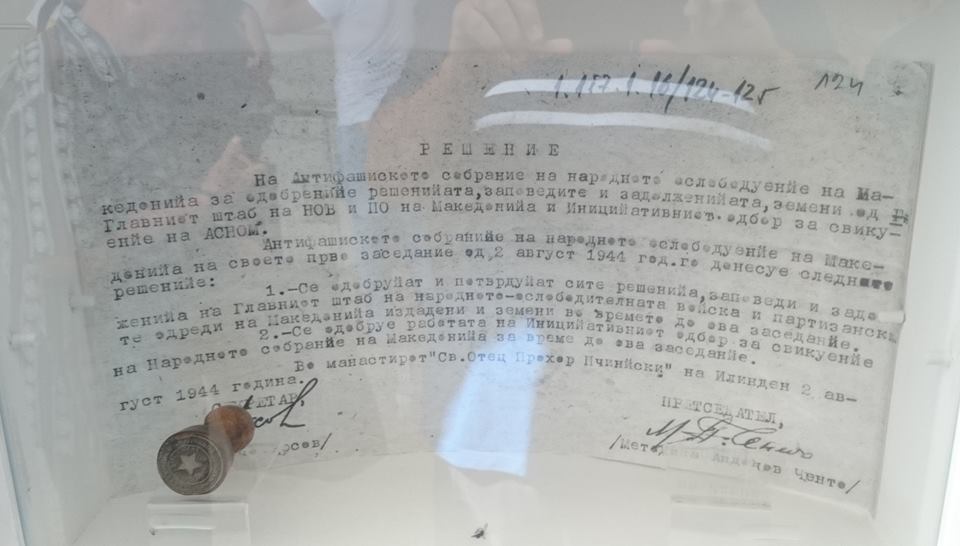 1.117.1.16/124-125
124
РЕШЕНИЕ
На Антифашиското собрание на народното ослободуенйе на Ма-
кедонийа за одобренийе решенийата, заповедите и задолженийата, земени од
Главниот штаб на НОВ и ПО на Македонийа и Иницийативниот одбор за свику-
енйе на АСНОМ.
Антифашиското собранийе на народното ослободуенйе на Маке-
донийа на своето прво заседание од 2 август 1944 год. го донесуе следното
решенийе:
1.-Се одобруйат и потврдуйат сите решенийа, заповеди и задо-
женийа на Главниот штаб на народно-ослободителната войска и партизански
те одреди на Македонийа издадени и земени во времето до ова заседание.
2.-Се одобруе работата на Иницийативниот одбор за свикуенйе
на Народното собрание на Македонийа за време до ова заседание.
Во манастирот "Св.Отец Прохор Пчинйски" на Илинден 2 ав-
густ 1944 година.
СЕКРЕТАР
ПРЕТСЕДАТЕЛ,
/Методийа Андонов Ченто/